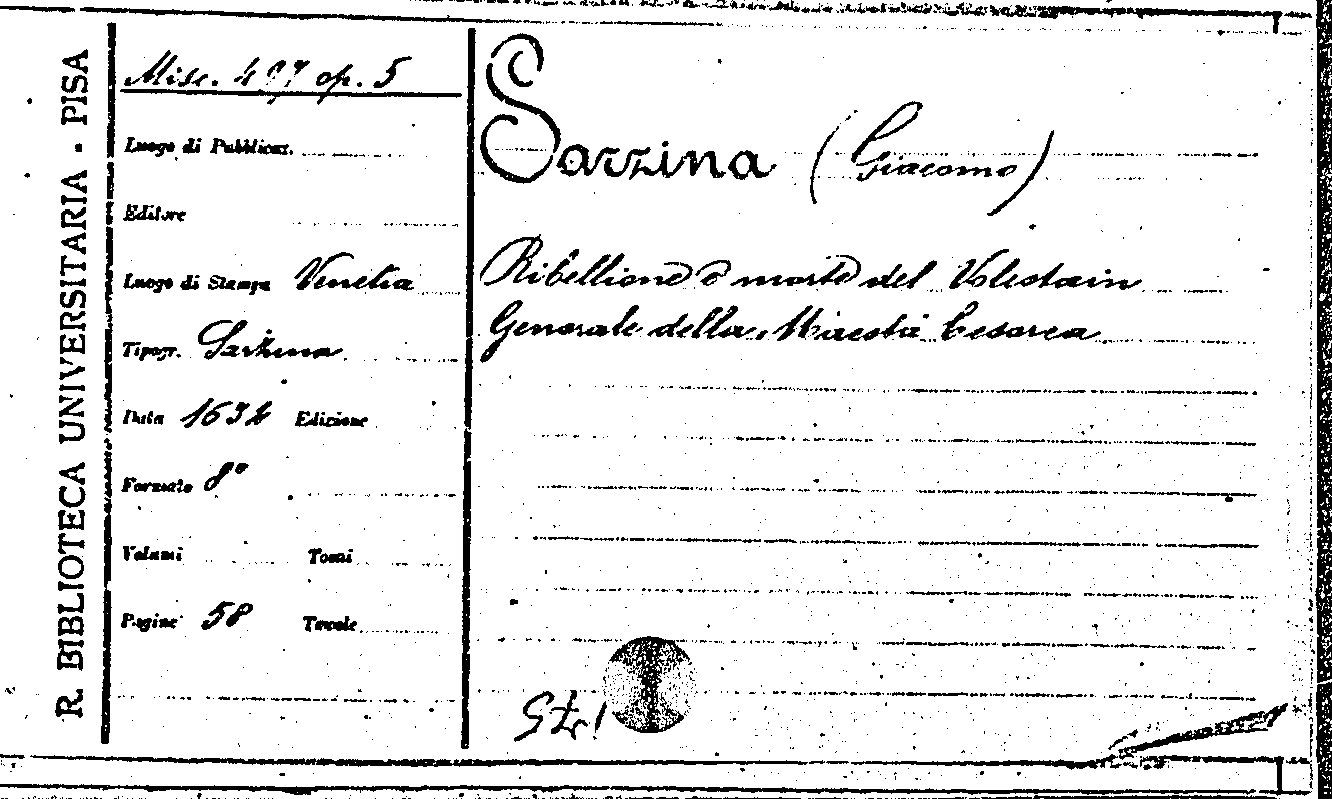 R. BIBLIOTECA UNIVERSITARIA - PISA
Misc. 497 op. 5
Luogo di Pubblicaz.
Editore
Luogo di Stampa Venetia
Tipogr. Sarzina
Data 1634 Edizione
Formato 8°
Volumi Tomi
Pagine 58 Tavole
Sarzina (Giacomo)
Ribellione e morte del Volestain
Generale della Maestà Cesarea